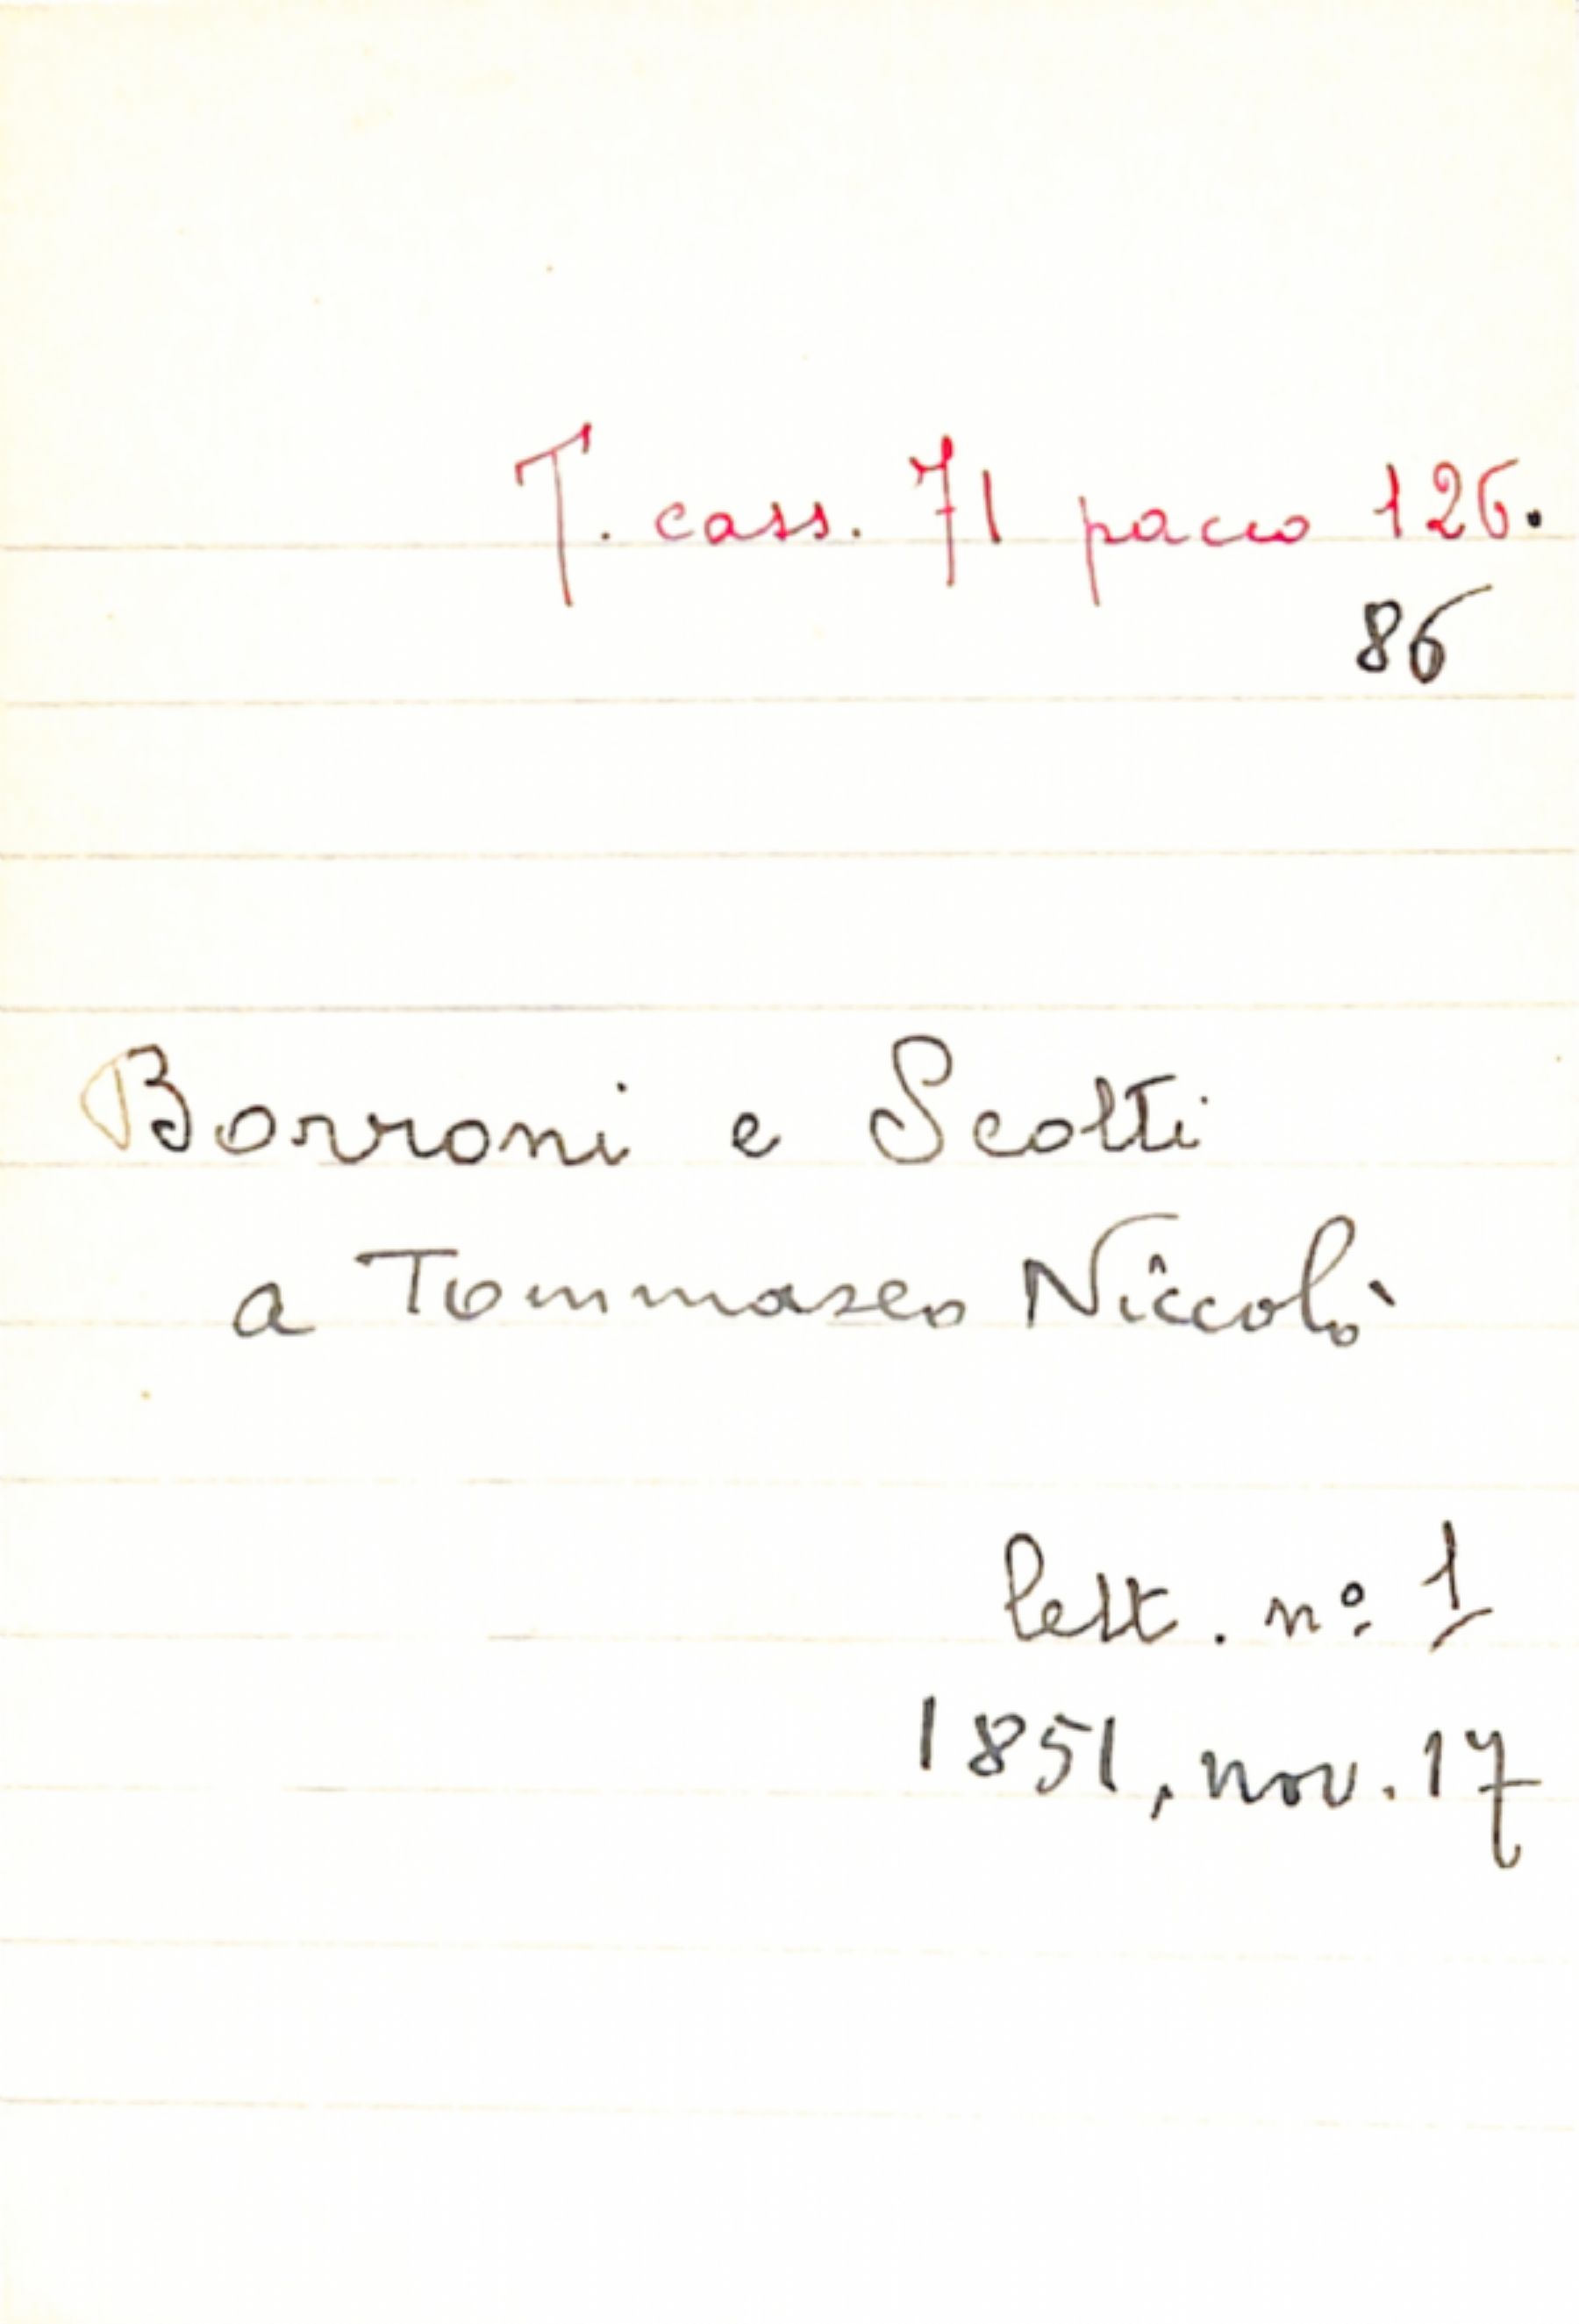 T. cass. 71 pacco 126.
86
Borroni e Scotti
a Tommaseo Niccolò
lett. nº 1
1851, nov. 17